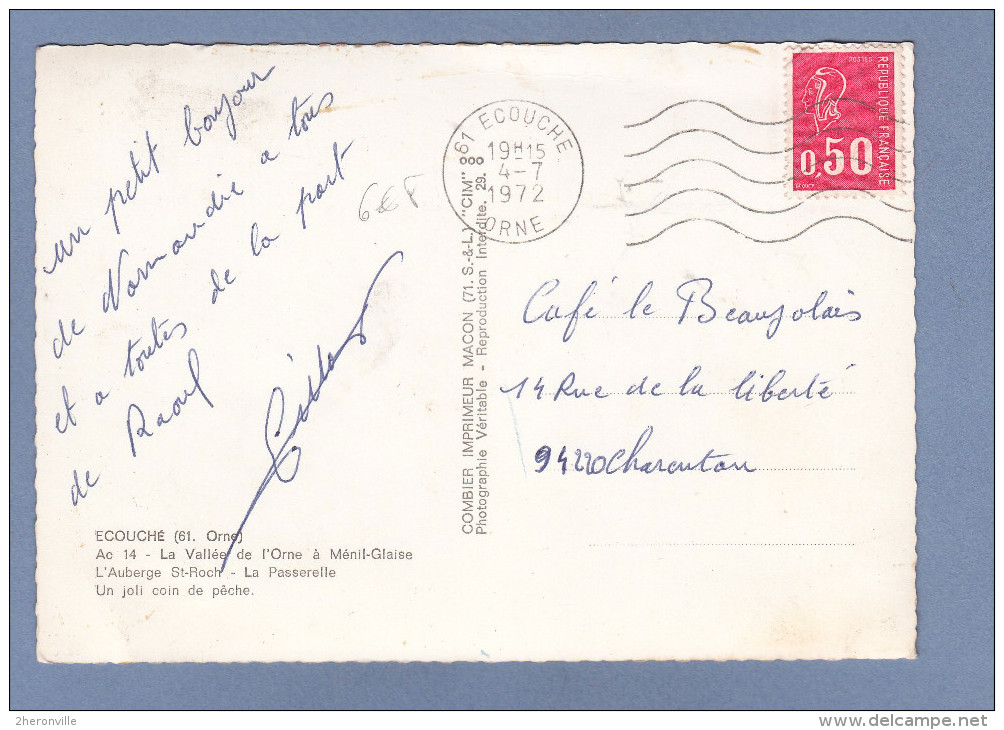 un petit bonjour
de Normandie a tous
et a toutes de la part
de Raoul
6€F
61 ECOUCHE
19H15
4-7
1972
ORNE
POSTES
REPUBLIQUE FRANÇAISE
0,50
COMBIER IMPRIMEUR MACON (71. S.-&-L.) "CIM"
Photographie Véritable - Reproduction Interdite. 29.
Café le Beaujolais
14 Rue de la liberté
94220 Charenton
ECOUCHÉ (61. Orne)
Ao 14 - La Vallée de l'Orne à Ménil-Glaise
L'Auberge St-Roch - La Passerelle
Un joli coin de pêche.
2heronville
delcampe.net